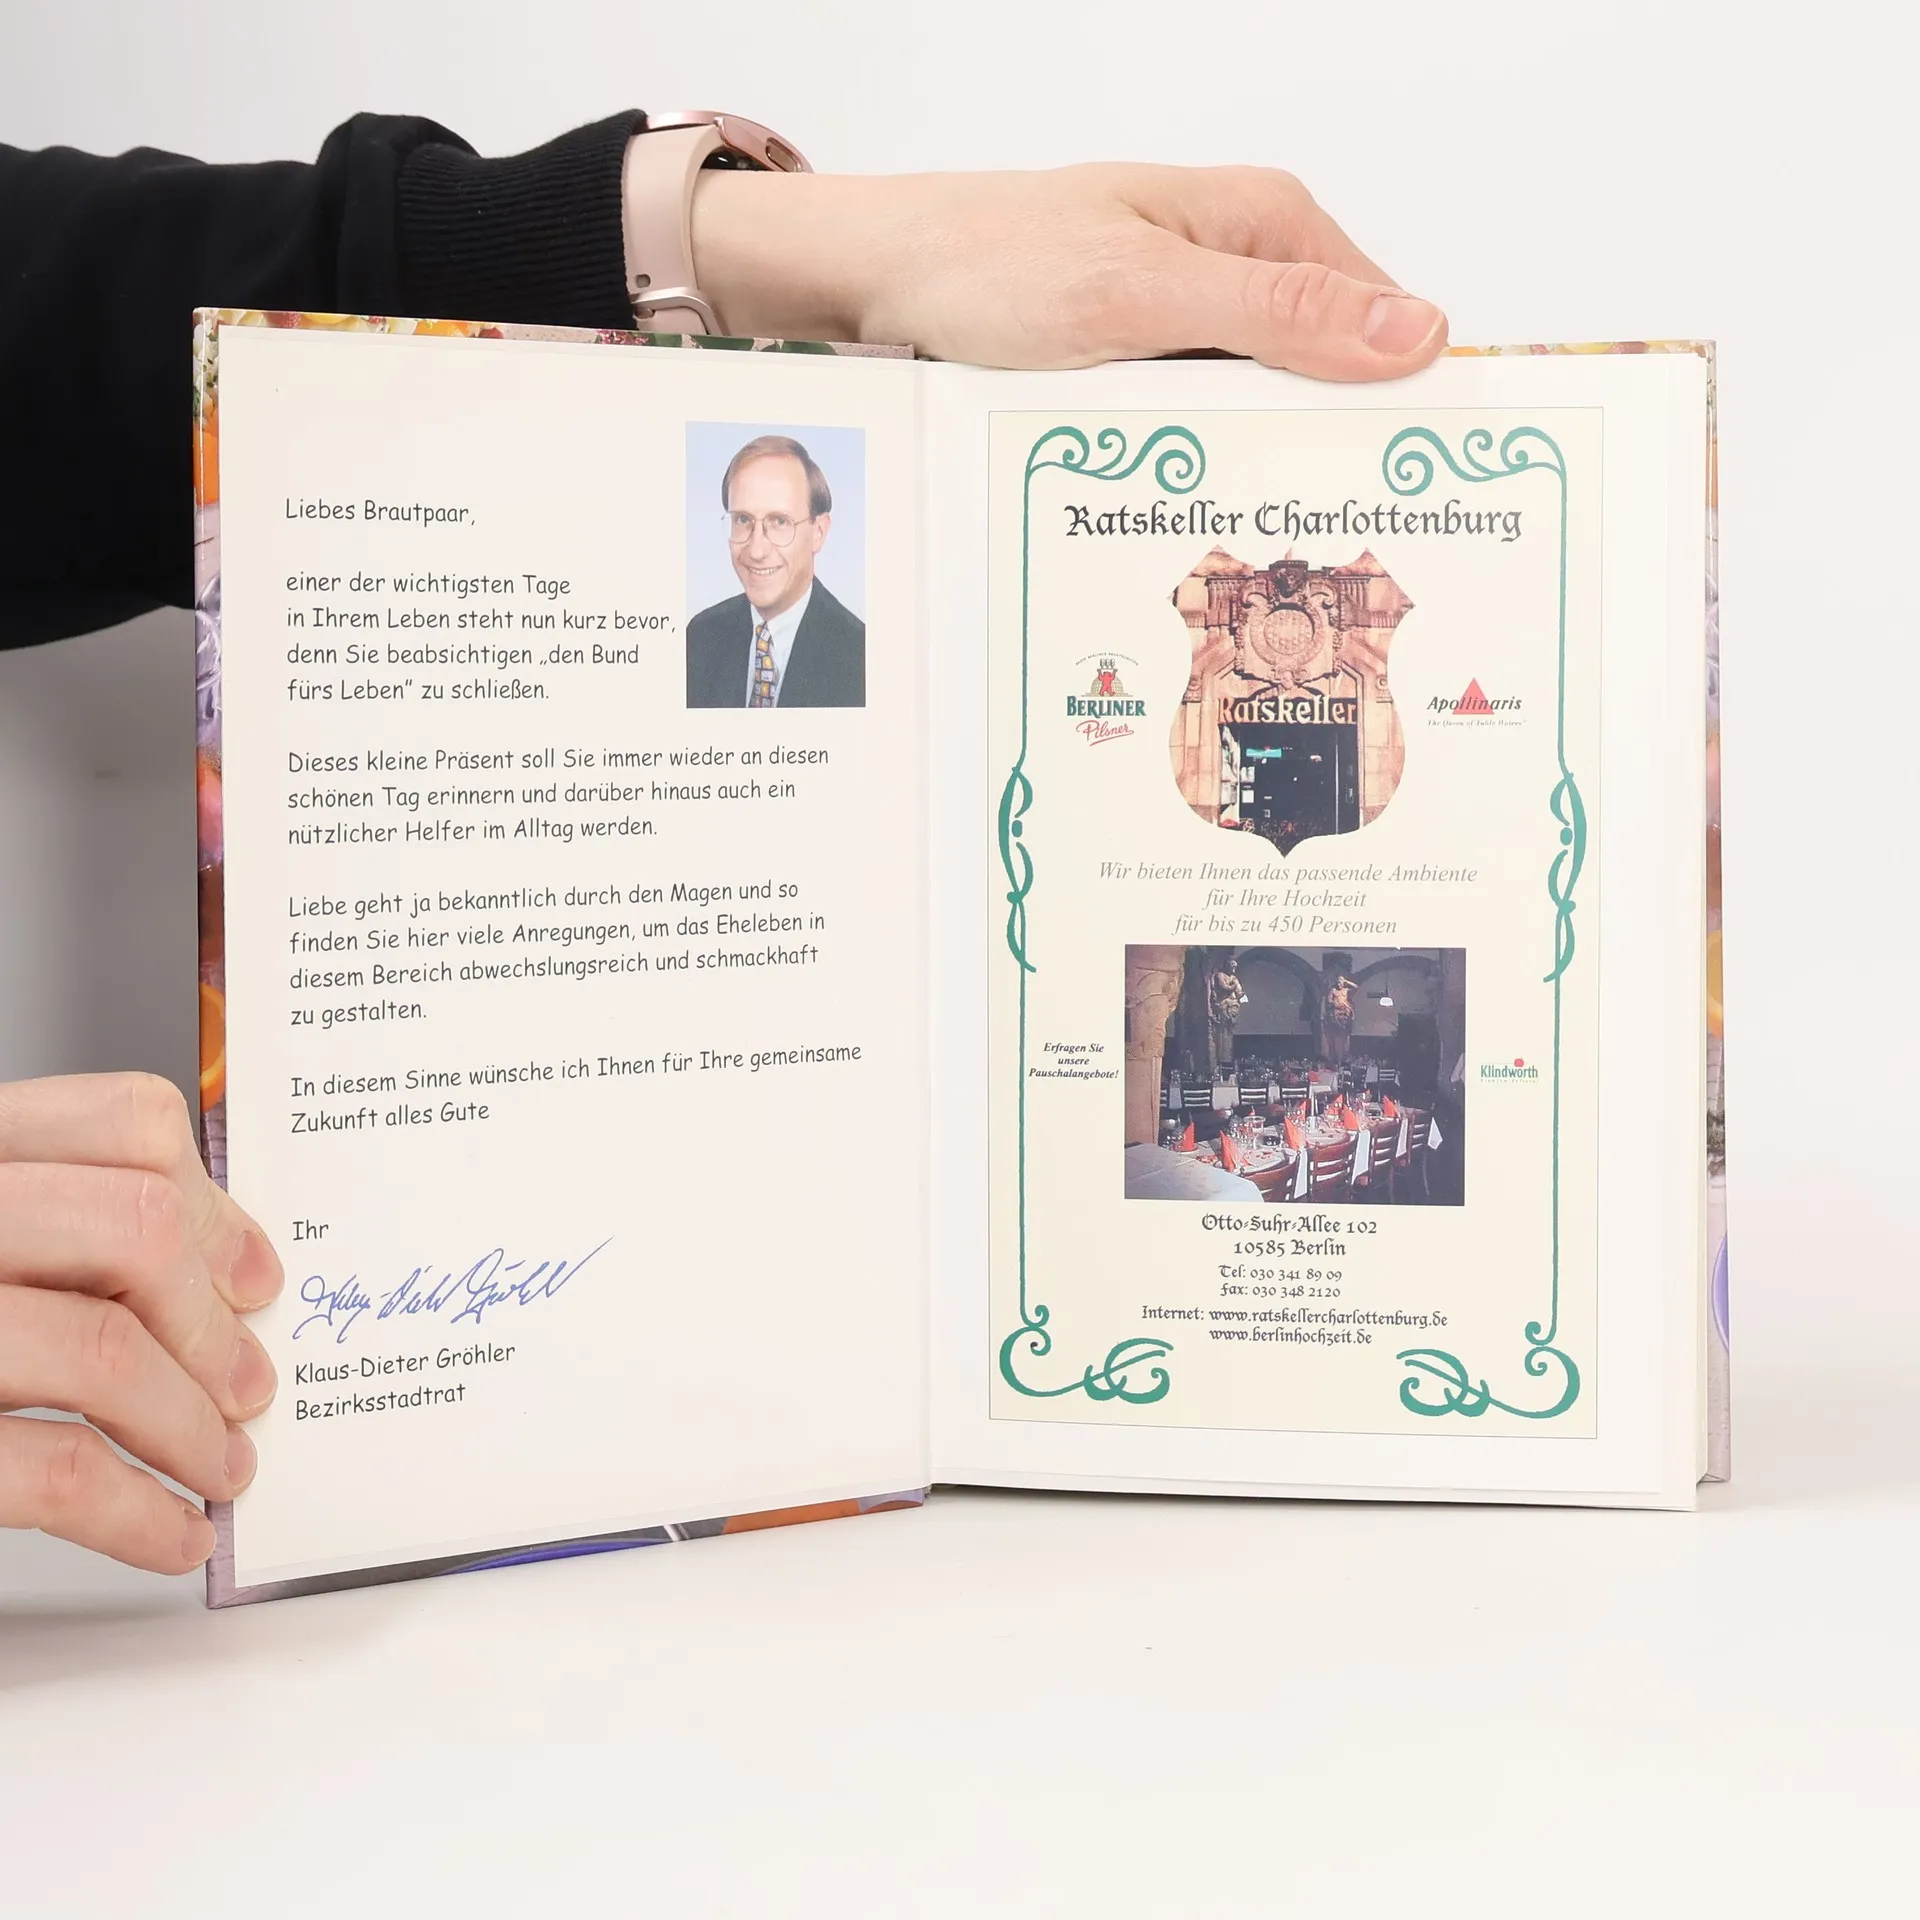 Liebes Brautpaar,
einer der wichtigsten Tage
in Ihrem Leben steht nun kurz bevor,
denn Sie beabsichtigen „den Bund
fürs Leben” zu schließen.
Dieses kleine Präsent soll Sie immer wieder an diesen
schönen Tag erinnern und darüber hinaus auch ein
nützlicher Helfer im Alltag werden.
Liebe geht ja bekanntlich durch den Magen und so
finden Sie hier viele Anregungen, um das Eheleben in
diesem Bereich abwechslungsreich und schmackhaft
zu gestalten.
In diesem Sinne wünsche ich Ihnen für Ihre gemeinsame
Zukunft alles Gute
Ihr
Klaus-Dieter Gröhler
Bezirksstadtrat
Ratskeller Charlottenburg
Ratskeller
BERLINER
Pilsner
Apollinaris
The Queen of Table Waters
Wir bieten Ihnen das passende Ambiente
für Ihre Hochzeit
für bis zu 450 Personen
Erfragen Sie
unsere
Pauschalangebote!
Klindworth
Otto-Suhr-Allee 102
10585 Berlin
Tel: 030 341 89 09
Fax: 030 348 2120
Internet: www.ratskellercharlottenburg.de
www.berlinhochzeit.de